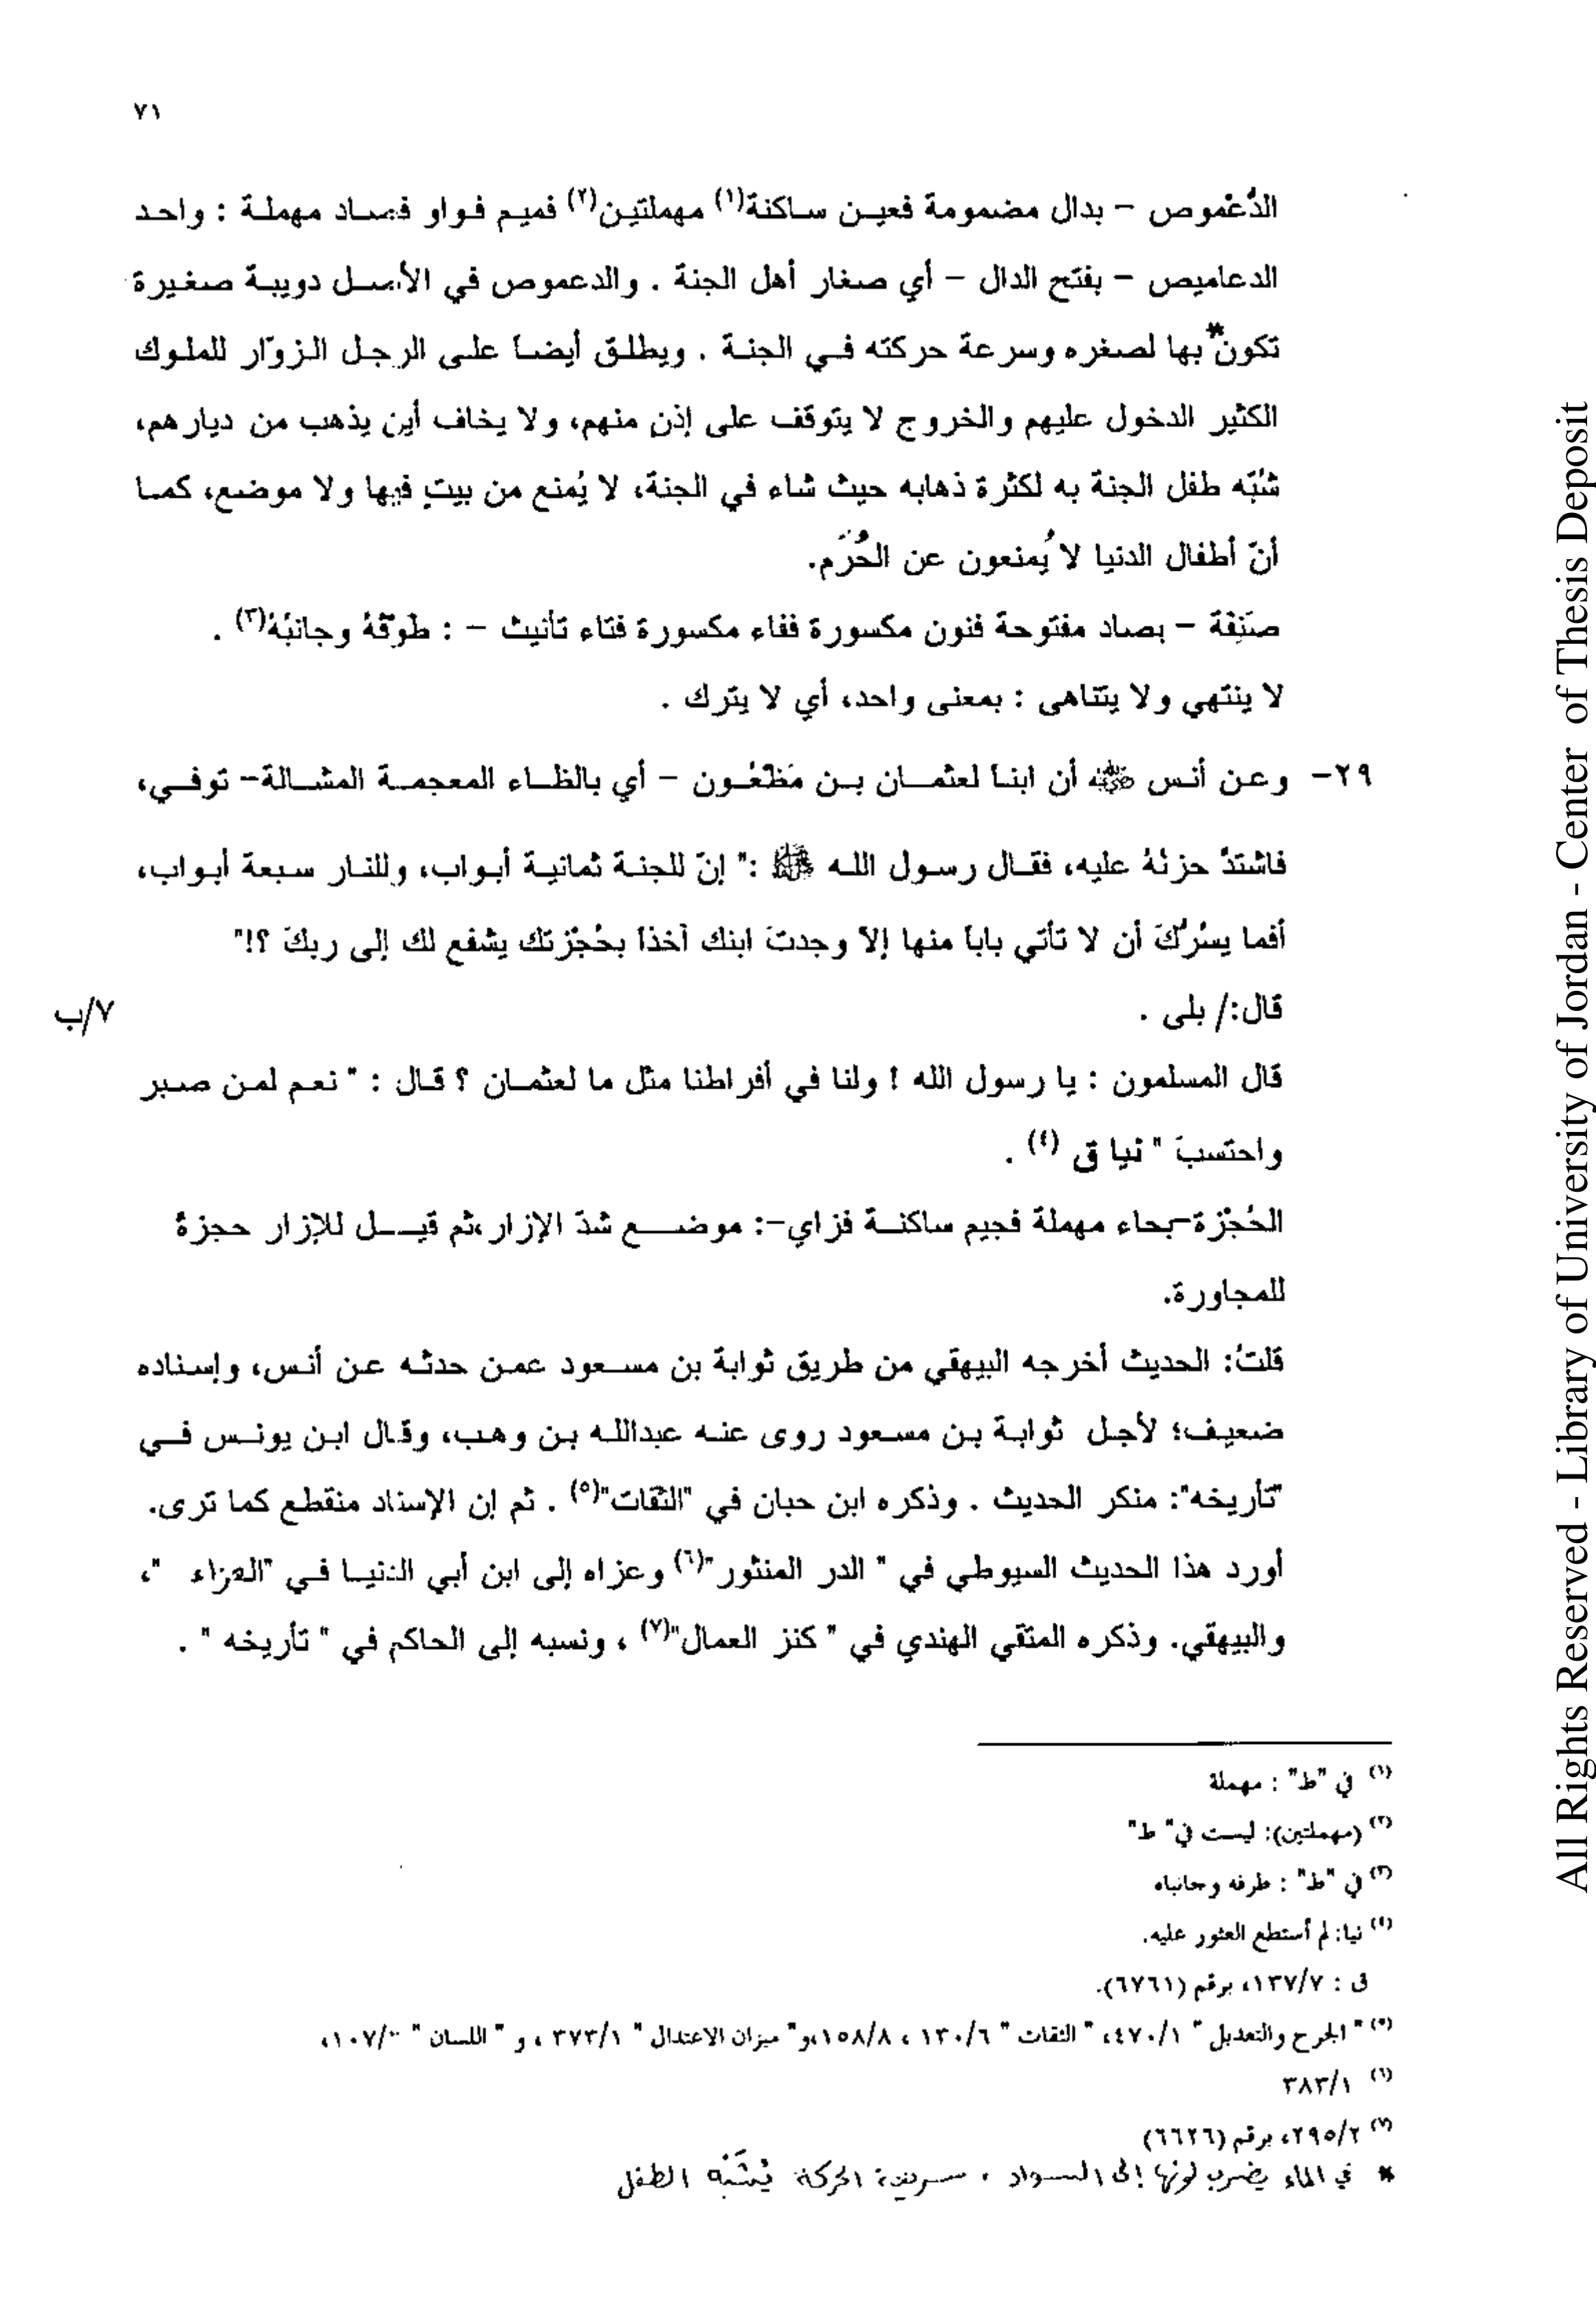 ٧١
الدُّعْموص – بدال مضمومة فعين ساكنة(١) مهملتين(٢) فميم فواو فصاد مهملة : واحد
الدعاميص – بفتح الدال – أي صغار أهل الجنة . والدعموص في الأصل دويبة صغيرة
تكون* بها لصغره وسرعة حركته في الجنة . ويطلق أيضاً على الرجل الزوّار للملوك
الكثير الدخول عليهم والخروج لا يتوقف على إذن منهم، ولا يخاف أين يذهب من ديارهم،
شُبّه طفل الجنة به لكثرة ذهابه حيث شاء في الجنة، لا يُمنع من بيتٍ فيها ولا موضع، كما
أنّ أطفال الدنيا لا يُمنعون عن الحُرَم.
صَنِفَة – بصاد مفتوحة فنون مكسورة ففاء مكسورة فتاء تأنيث – : طوقهُ وجانبُهُ(٣) .
لا ينتهي ولا يتناهى : بمعنى واحد، أي لا يترك .
٢٩– وعن أنس ﷺ أن ابناً لعثمان بن مَظْعُون – أي بالظاء المعجمة المشالة– توفي،
فاشتدَّ حزنُهُ عليه، فقال رسول الله ﷺ :" إنّ للجنة ثمانية أبواب، وللنار سبعة أبواب،
أفما يسُرُّكَ أن لا تأتي باباً منها إلاّ وجدتَ ابنك آخذاً بحُجْزتك يشفع لك إلى ربكَ ؟!"
قال:/ بلى .
٧/ب
قال المسلمون : يا رسول الله ! ولنا في أفراطنا مثل ما لعثمان ؟ قال : " نعم لمن صبر
واحتسبَ " نيا ق (٤) .
الحُجْزة–بحاء مهملة فجيم ساكنة فزاي–: موضع شدّ الإزار،ثم قيل للإزار حجزةً
للمجاورة.
قلتُ: الحديث أخرجه البيهقي من طريق ثوابة بن مسعود عمن حدثه عن أنس، وإسناده
ضعيف؛ لأجل ثوابة بن مسعود روى عنه عبدالله بن وهب، وقال ابن يونس في
"تأريخه": منكر الحديث . وذكره ابن حبان في "الثقات"(٥) . ثم إن الإسناد منقطع كما ترى.
أورد هذا الحديث السيوطي في " الدر المنثور"(٦) وعزاه إلى ابن أبي الدنيا في "العزاء "،
والبيهقي. وذكره المتقي الهندي في " كنز العمال"(٧) ، ونسبه إلى الحاكم في " تأريخه " .
(١) في "ط" : مهملة
(٢) (مهملتين): ليست في" ط"
(٣) في "ط" : طرفه وجانباه
(٤) نيا: لم أستطع العثور عليه.
ق : ١٣٧/٧، برقم (٦٧٦١).
(٥) " الجرح والتعديل " ٤٧٠/١، " الثقات " ١٣٠/٦ ، ١٥٨/٨،و" ميزان الاعتدال " ٣٧٣/١ ، و " اللسان " /١٠٧،
(٦) ٣٨٣/١
(٧) ٢٩٥/٢، برقم (٦٦٢٦)
* في الماء يضرب لونها إلى السواد ، سريعة الحركة يُشَبَّه الطفل
All Rights Reserved - Library of University of Jordan - Center of Thesis Deposit